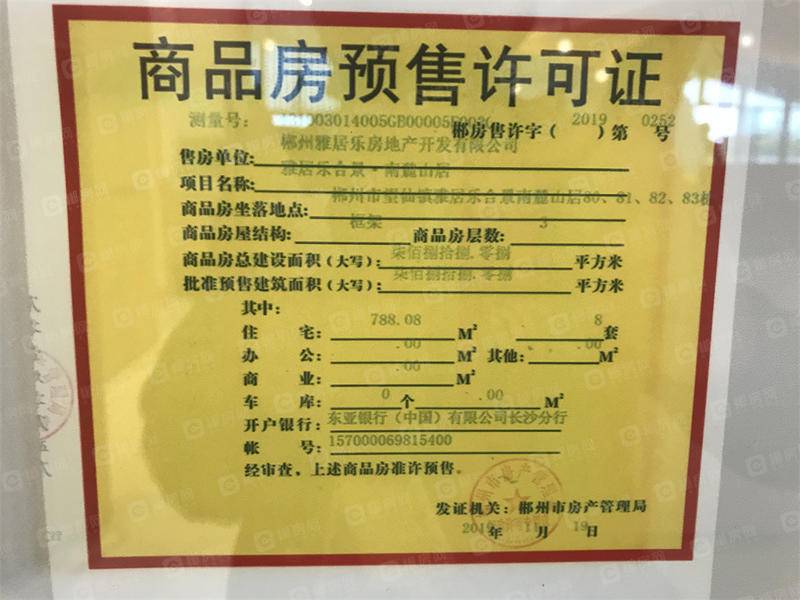 商品房预售许可证
测量号: 003014005GB00005F00
郴房售许字( 2019 )第 0252 号
售房单位: 郴州雅居乐房地产开发有限公司
项目名称: 雅居乐合景·南麓山居
商品房坐落地点: 郴州市望仙镇雅居乐合景南麓山居80、81、82、83栋
商品房屋结构: 框架 商品房层数: 3
商品房总建设面积(大写): 柒佰捌拾捌.零捌 平方米
批准预售建筑面积(大写): 柒佰捌拾捌.零捌 平方米
其中:
住 宅: 788.08 M² 8 套
办 公: .00 M² 其他: .00 M²
商 业: .00 M²
车 库: 0 个 .00 M²
开户银行: 东亚银行(中国)有限公司长沙分行
帐 号: 157000069815400
经审查、上述商品房准许预售。
发证机关: 郴州市房产管理局
2019 年 11 月 19 日